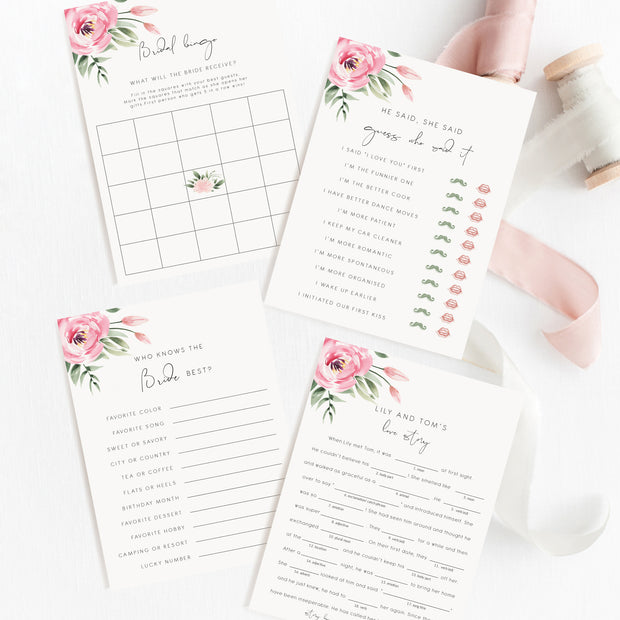 Bridal bingo
WHAT WILL THE BRIDE RECEIVE?
Fill in the squares with your best guests.
Mark the squares that match as she opens her
gifts. First person who gets 5 in a row wins!
HE SAID, SHE SAID
guess who said it
I SAID "I LOVE YOU" FIRST
I'M THE FUNNIER ONE
I'M THE BETTER COOK
I HAVE BETTER DANCE MOVES
I'M MORE PATIENT
I KEEP MY CAR CLEANER
I'M MORE ROMANTIC
I'M MORE SPONTANEOUS
I'M MORE ORGANISED
I WAKE UP EARLIER
I INITIATED OUR FIRST KISS
WHO KNOWS THE
Bride BEST?
FAVORITE COLOR
FAVORITE SONG
SWEET OR SAVORY
CITY OR COUNTRY
TEA OR COFFEE
FLATS OR HEELS
BIRTHDAY MONTH
FAVORITE DESSERT
FAVORITE HOBBY
CAMPING OR RESORT
LUCKY NUMBER
LILY AND TOM'S
love story
When Lily met Tom, it was at first sight.
1. noun
He couldn't believe his ! She smelled like
2. body part 3. noun
and worked as graceful as a . He
4. animal 5. verb/ed
over to say " " and introduced himself. She
6. exclamation/catchphrase
was so ! She had seen him around and thought he
7. adjective
was super . They for a while and then
8. adjective 9. verb/ed
exchanged . On their first date, they
10. plural noun 11. verb/ed
at the and he couldn't keep his off her.
12. location 13. body part
After a night, he was to bring her home
She looked at him and said "
and he just knew, he had to her again. Since then
have been inseperable. He has called her